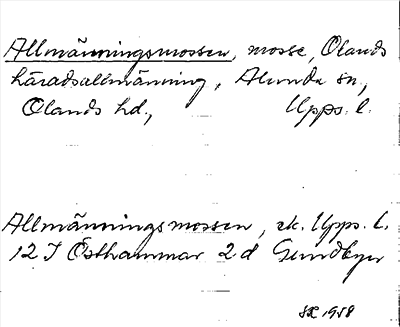 Allmänningsmossen, mosse, Olands
häradsallmänning, Alunda sn,
Olands hd, Upps. l.
Allmänningsmossen, ek. Upps. l.
12 I Östhammar 2 d Gundbyn
1958